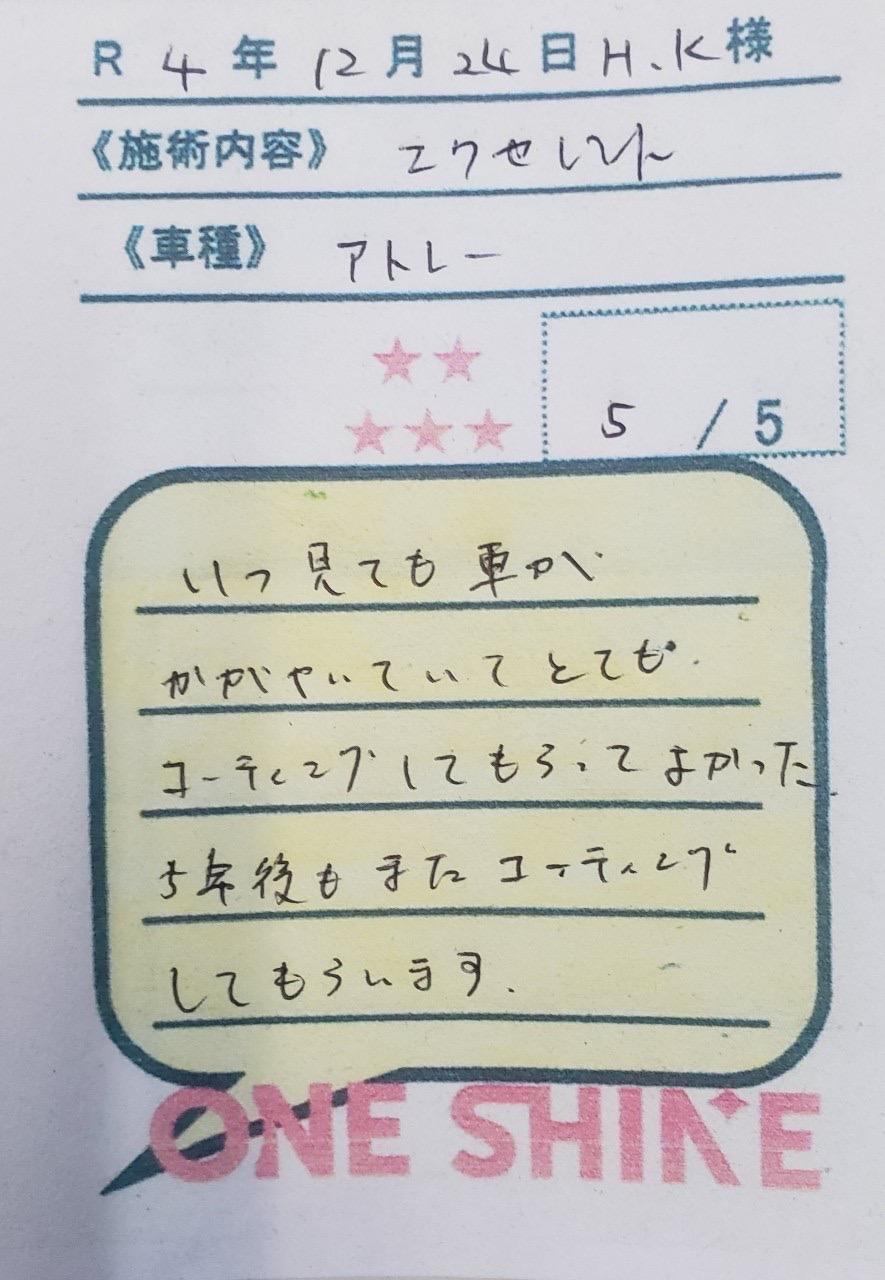 R 4年 12月 24日 H.K様
《施術内容》 エクセレント
《車種》 アトレー
5 / 5
いつ見ても車が
かがやいていてとても
コーティングしてもらってよかった
5年後もまたコーティング
してもらいます.
ONE SHINE